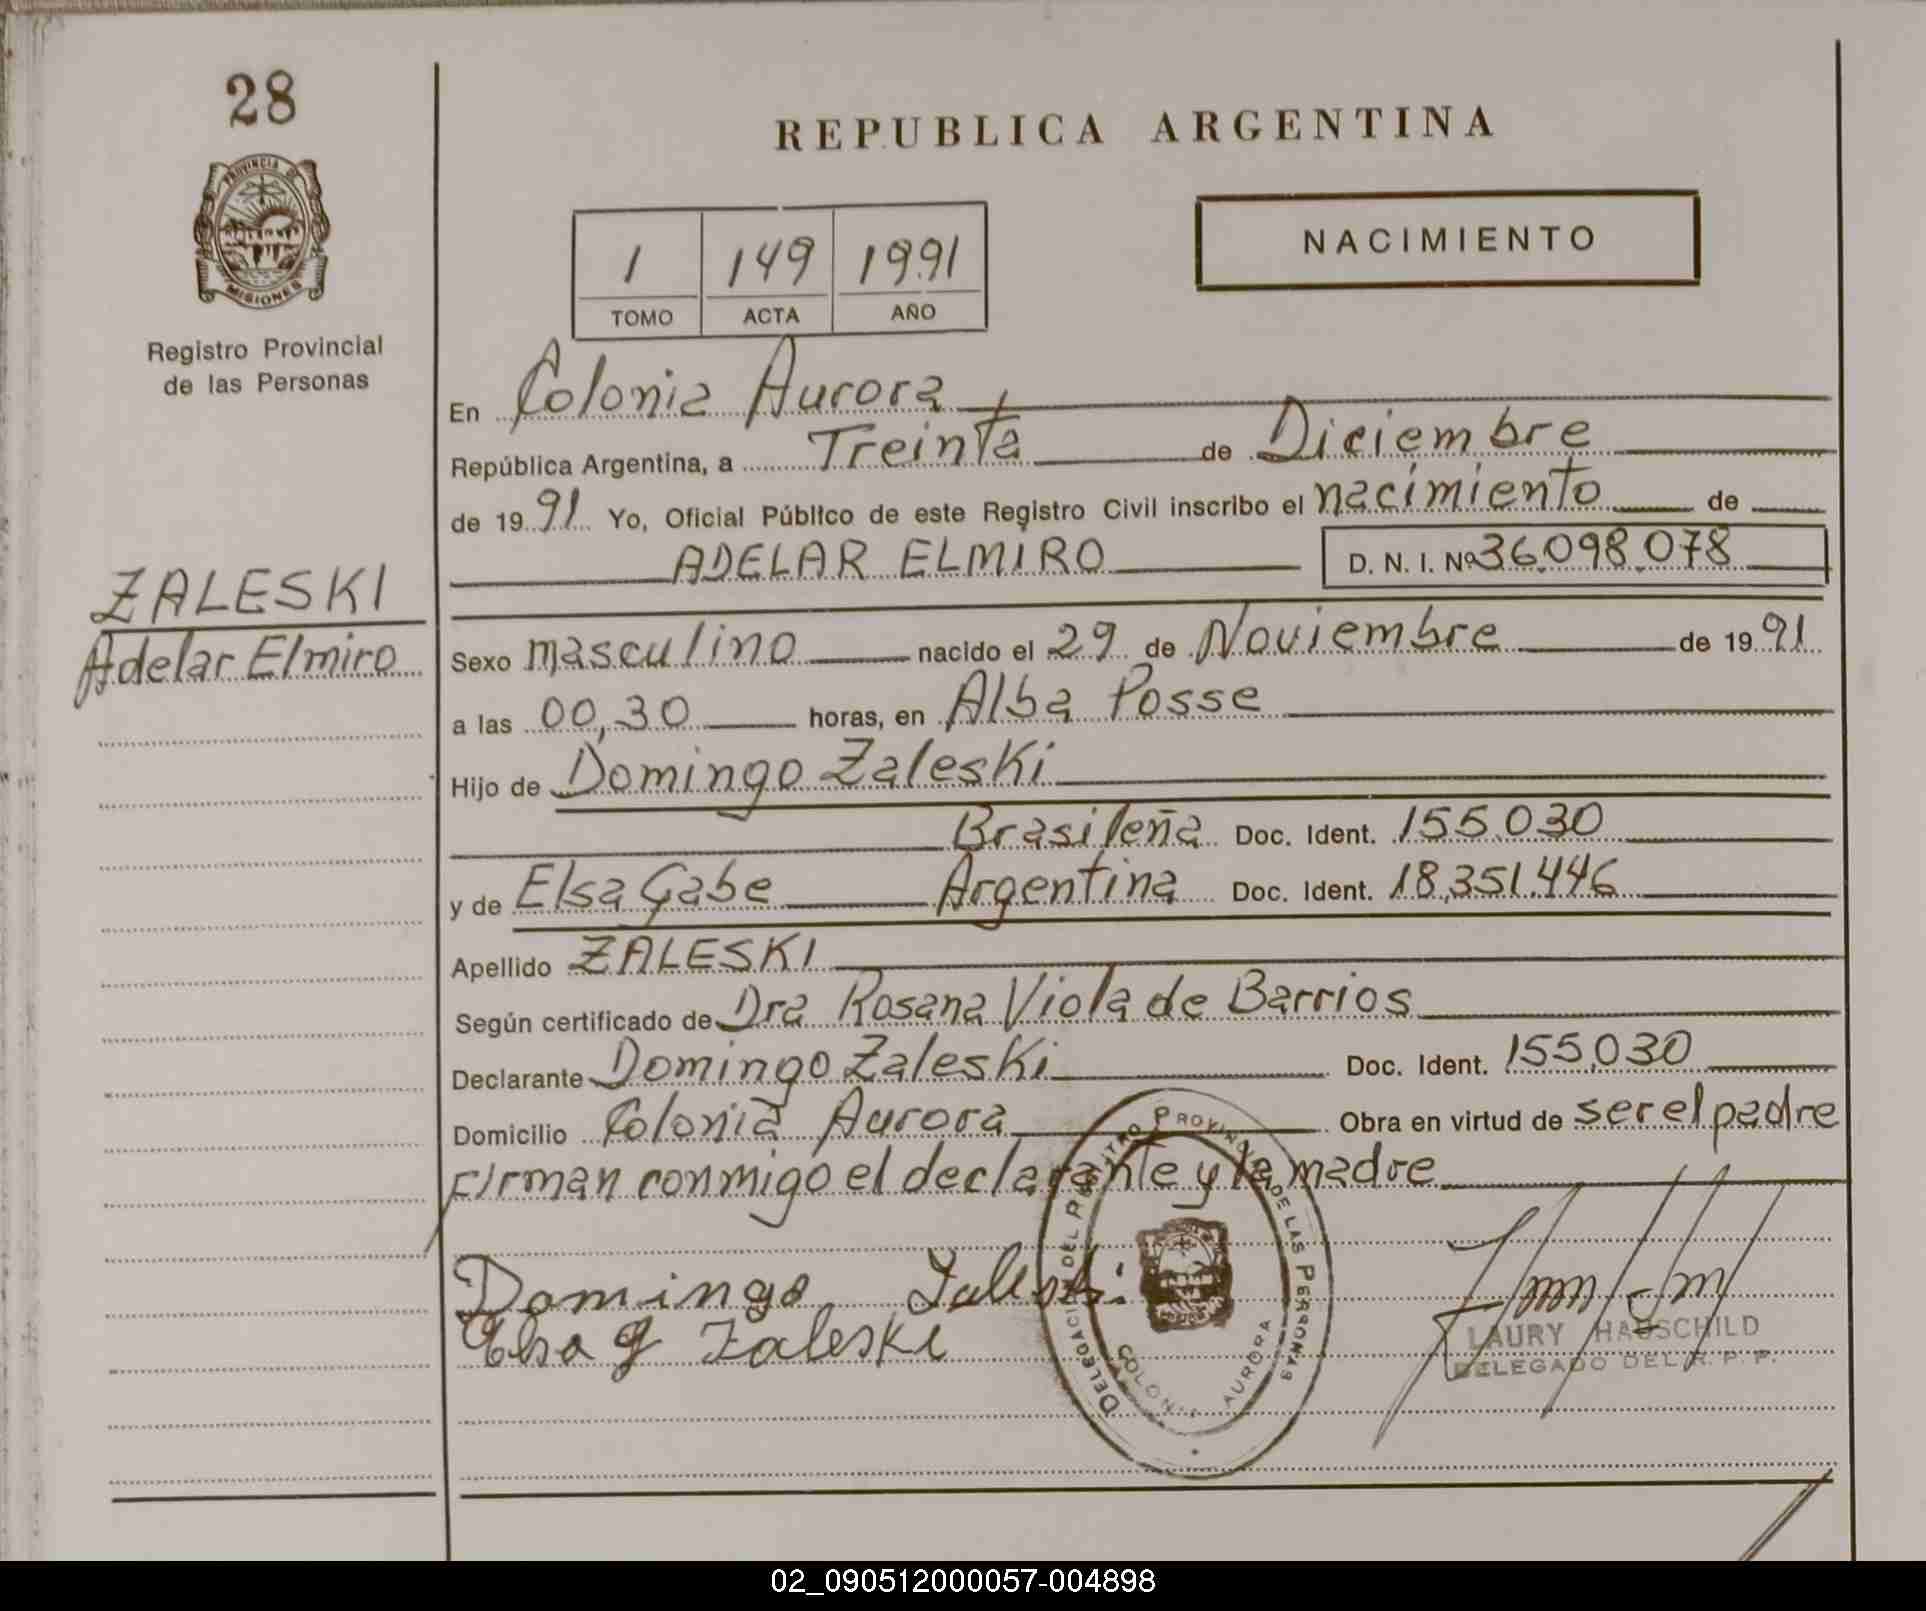 28
REPUBLICA ARGENTINA
PROVINCIA DE
MISIONES
Registro Provincial
de las Personas
1 149 1991
TOMO ACTA AÑO
NACIMIENTO
En Colonia Aurora
República Argentina, a Treinta de Diciembre
de 1991 Yo, Oficial Público de este Registro Civil inscribo el nacimiento de
ADELAR ELMIRO D. N. I. Nº 36.098.078
ZALESKI
Adelar Elmiro
Sexo masculino nacido el 29 de Noviembre de 1991
a las 00,30 horas, en Alba Posse
Hijo de Domingo Zaleski
Brasileña Doc. Ident. 155.030
y de Elsa Gabe Argentina Doc. Ident. 18.351.446
Apellido ZALESKI
Según certificado de Dra Rosana Viola de Barrios
Declarante Domingo Zaleski Doc. Ident. 155.030
Domicilio Colonia Aurora Obra en virtud de ser el padre
Firman conmigo el declarante y la madre
Domingo Zaleski
Elsa g Zaleski
DELEGACION DEL REGISTRO PROVINCIAL DE LAS PERSONAS
COLONIA AURORA
LAURY HAUSCHILD
DELEGADO DEL R. P. P.
02_090512000057-004898